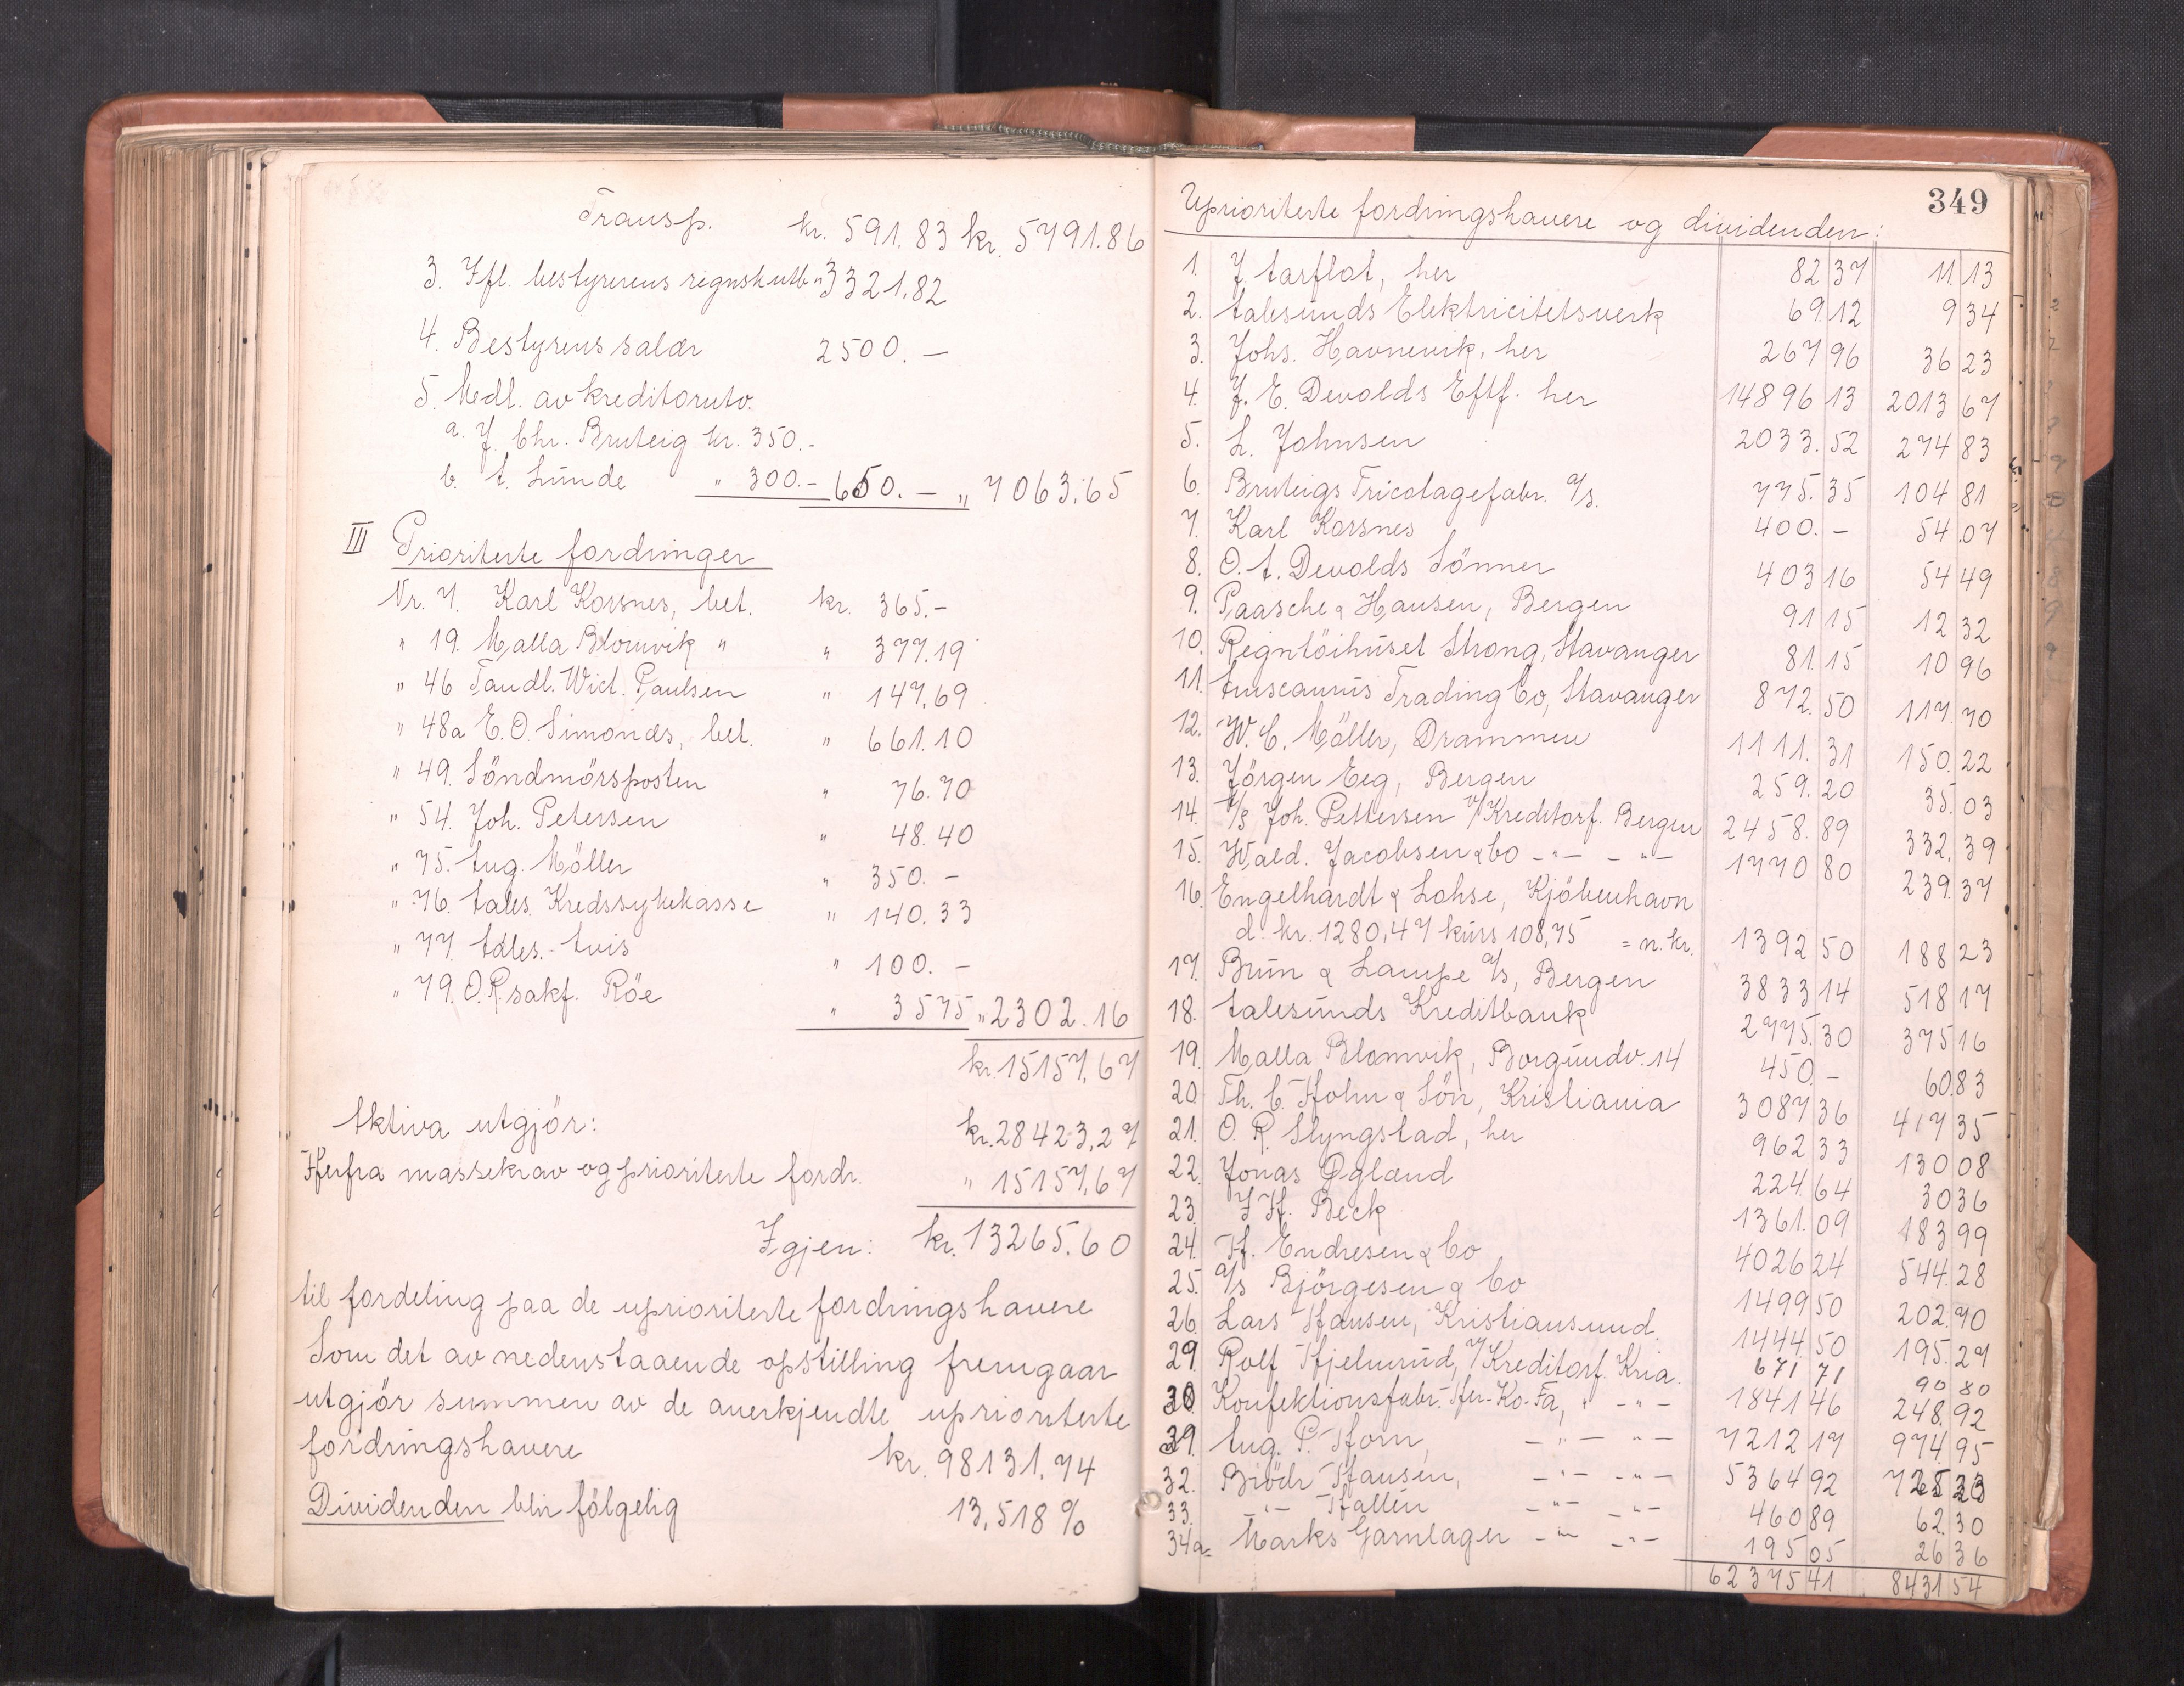 Transp. kr. 591.83 kr. 5791.86
3. Ifl. bestyrerens regnskutb. " 3321,82
4. Bestyrens salær 2500.—
5. Medl. av kreditorutv.
a. J. Chr. Bruteig kr. 350.-
b. A. Lunde " 300.- 650.— " 7063.65
III Prioriterte fordringer
Nr. 7. Karl Korsnes, bet. kr. 365.-
" 19. Malla Blomvik " " 377.19
" 46 Tandl. Wict. Paulsen " 147,69
" 48a E. O. Simonds, bet. " 661.10
" 49. Söndmörsposten " 76.70
" 54. Joh. Petersen " 48.40
" 75. Aug. Möller " 350.—
" 76. Aales. Kredssykekasse " 140.33
" 77. Adles.-Avis " 100.—
" 79. O.R.sakf. Röe " 3575 " 2302.16
kr. 15157,67
Aktiva utgjör: kr. 28423,27
Herfra massekrav og prioriterte fordr. " 15157,67
Igjen: kr. 13265.60
til fordeling paa de uprioriterte fordringshavere
Som det av nedenstaaende opstilling fremgaar
utgjör summen av de anerkjendte uprioriterte
fordringshavere kr. 98131,74
Dividenden blir fölgelig 13,518 %
349
Uprioriterte fordringshavere og dividenden:
1. J. Aarflot, her 82 37 11. 13
2. Aalesunds Elektricitetsverk 69.12 9 34
3. Johs. Havnevik, her 267 96 36 23
4. J. E. Devolds Eftf. her 14896 13 2013 67
5. L. Johnsen 2033. 52 274 83
6. Bruteigs Tricotagefabr. A/s. 775. 35 104 81
7. Karl Korsnes 400. — 54.07
8. O. A. Devolds Sönner 403 16 54 49
9. Paasche & Hansen, Bergen 91 15 12 32
10. Regntöihuset Strong, Stavanger 81. 15 10 96
11. Trading Co, Stavanger 872. 50 117. 70
12. W. C. Möller, Drammen 1111. 31 150. 22
13. Jörgen Eeg, Bergen 259. 20 35. 03
14. A/s Joh. Pettersen v/Kreditorf. Bergen 2458. 89 332. 39
15. Wald. Jacobsen & Co -"- -"- 1770 80 239. 37
16. Engelhardt & Lohse, Kjöbenhavn
d. kr. 1280,47 kurs 108,75 = n. kr. 1392 50 188 23
17. Brun & Lampe A/s, Bergen 3833 14 518 17
18. Aalesunds Kreditbank 2775. 30 375 16
19. Malla Blomvik, Borgundv. 14 450. — 60.83
20. Th. C. Holm & Sön, Kristiania 3087 36 417 35
21. O. R. Slyngstad, her 962 33 130 08
22. Jonas Øglænd 224. 64 30 36
23. I H. Beck 1361. 09 183 99
24. H. Endresen & Co 4026 24 544. 28
25. A/s Björgesen & Co 1499 50 202. 70
26. Lars Hansen, Kristiansund. 1444. 50 195. 27
29. Rolf Hjelmrud, v/Kreditorf. Kria. 671 71 90 80
30. Konfektionsfabr. Her-Ko-Fa, " -"- 1841 46 248. 92
31. Aug. P. Horn, -"- -"- 7212 17 974. 95
32. Brödr. Hansen, -"- -"- 5364 92 725 23
33. -"- Hallén -"- -"- 460 89 62. 30
34a. Marks Garnlager -"- -"- 195 05 26 36
62375 41 8431 54